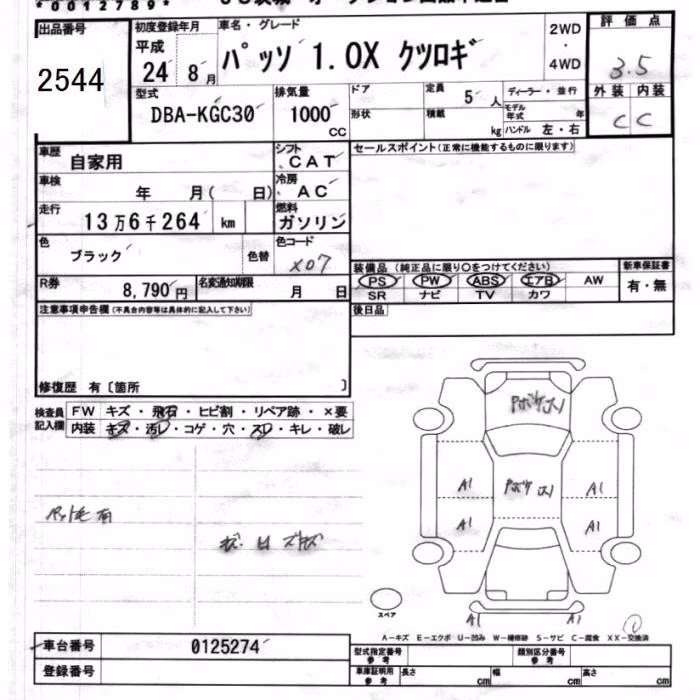 *0012789*
出品番号
2544
初度登録年月
平成
24年 8月
車名・グレード
パッソ 1.0X クツロギ
2WD
・
4WD
評価点
3.5
外装 内装
C C
型式
DBA-KGC30
排気量
1000
CC
ドア
形状
定員
5 人
積載
kg
ディーラー・並行
モデル年式 年
ハンドル 左・右
車歴
自家用
シフト
CAT
セールスポイント(正常に機能するものに限ります)
車検
年 月( 日)
冷房
AC
走行
13万6千264 km
燃料
ガソリン
色
ブラック
色替
色コード
X07
装備品 (純正品に限り○をつけてください)
新車保証書
PS PW ABS エアB AW
有・無
SR ナビ TV カワ
R券
8,790円
名変通知期限
月 日
後日品
注意事項申告欄(不具合内容等は具体的に記入して下さい)
修復歴 有〔箇所 〕
検査員記入欄
FW キズ・飛石・ヒビ割・リペア跡・×要
内装 キズ・汚レ・コゲ・穴・スレ・キレ・破レ
ペット毛 有
PボケスI
Pボケ スI
A1 A1
A1 A1
スペア
A1 A1
A-キズ E-エクボ U-凹み W-補修跡 S-サビ C-腐食 XX-交換済
車台番号
0125274
登録番号
型式指定番号
参考
類別区分番号
参考
車庫証明用
参考
長さ cm 幅 cm 高さ cm